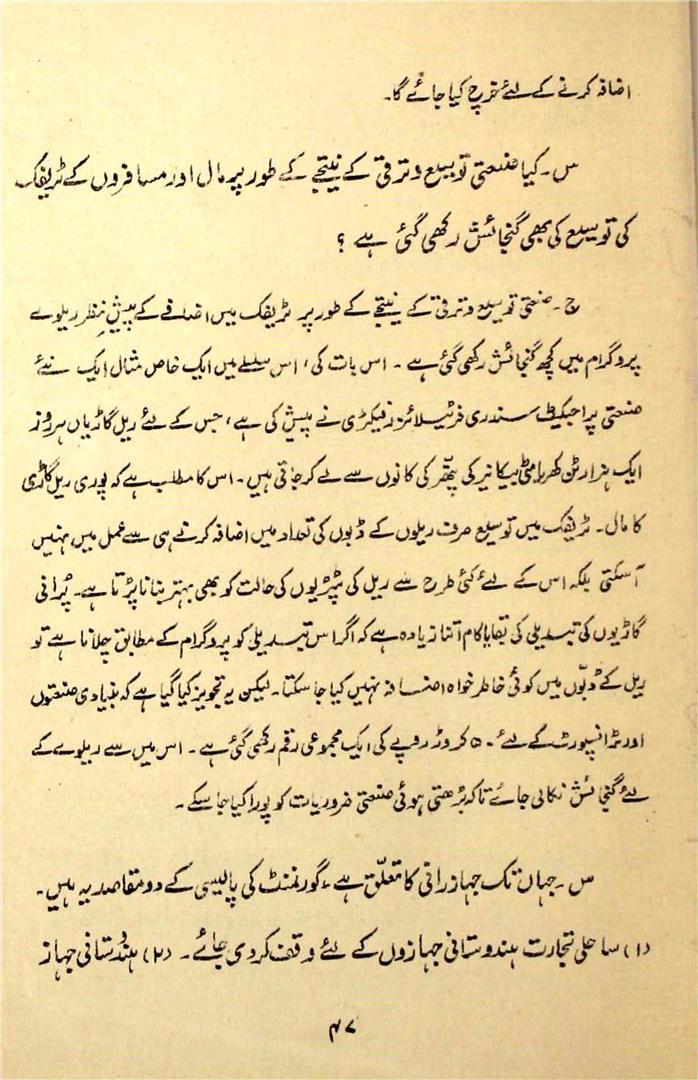 اضافہ کرنے کے لئے خرچ کیا جائے گا۔
س۔ کیا صنعتی توسیع و ترقی کے نتیجے کے طور پر مال اور مسافروں کے ٹریفک
کی توسیع کی بھی گنجائش رکھی گئی ہے ؟
ج۔ صنعتی توسیع و ترقی کے نتیجے کے طور پر ٹریفک میں اضافے کے پیشِ نظر ریلوے
پروگرام میں کچھ گنجائش رکھی گئی ہے ۔ اس بات کی، اس سلسلے میں ایک خاص مثال ایک نئے
صنعتی پراجیکٹ سندری فرٹیلائزر فیکٹری نے پیش کی ہے، جس کے لئے ریل گاڑیاں ہر روز
ایک ہزار ٹن کھریا مٹی بیکانیر کی پتھر کی کانوں سے لے کر جاتی ہیں۔ اس کا مطلب ہے کہ پوری ریل گاڑی
کا مال۔ ٹریفک میں توسیع صرف ریلوں کے ڈبوں کی تعداد میں اضافہ کرتے ہی سے عمل میں نہیں
آسکتی بلکہ اس کے لئے کئی طرح سے ریل کی پٹڑیوں کی حالت کو بھی بہتر بنانا پڑتا ہے۔ پُرانی
گاڑیوں کی تبدیلی کی بقایا کام اتنا زیادہ ہے کہ اگر اس تبدیلی کو پروگرام کے مطابق چلانا ہے تو
ریل کے ڈبّوں میں کوئی خاطر خواہ اضافہ نہیں کیا جا سکتا۔ لیکن یہ تجویز کیا گیا ہے کہ بنیادی صنعتوں
اور ٹرانسپورٹ کے لئے ۵۰ کروڑ روپے کی ایک مجموعی رقم رکھی گئی ہے ۔ اس میں سے ریلوے کے
لئے گنجائش نکالی جائے تاکہ بڑھتی ہوئی صنعتی ضروریات کو پورا کیا جا سکے ۔
س۔ جہاں تک جہاز رانی کا تعلّق ہے، گورنمنٹ کی پالیسی کے دو مقاصد یہ ہیں۔
(۱) ساحلی تجارت ہندوستانی جہازوں کے لئے وقف کر دی جائے ۔ (۲) ہندُستانی جہاز
۴۷